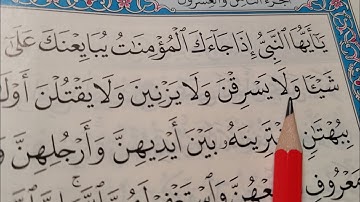 الجزء الثامن والعشرون
يَٰٓأَيُّهَا ٱلنَّبِىُّ إِذَا جَآءَكَ ٱلْمُؤْمِنَٰتُ يُبَايِعْنَكَ عَلَىٰٓ
شَيْـًٔا وَلَا يَسْرِقْنَ وَلَا يَزْنِينَ وَلَا يَقْتُلْنَ
بِبُهْتَٰنٍ يَفْتَرِينَهُۥ بَيْنَ أَيْدِيهِنَّ وَأَرْجُلِهِنَّ
مَعْرُوفٍ